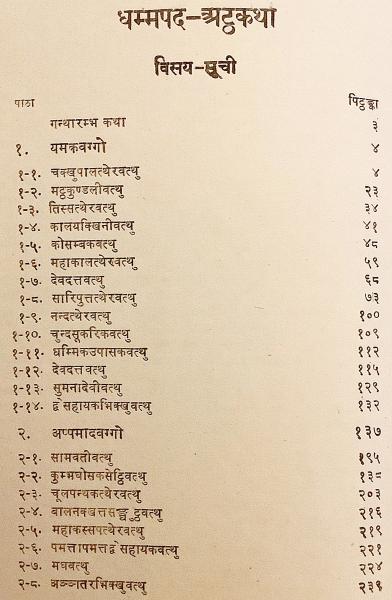 धम्मपद-अट्ठकथा
विसय-सूची
पाठा पिट्ठङ्का
गन्थारम्भ कथा ३
१. यमकवग्गो ४
१-१. चक्खुपालत्थेरवत्थु ४
१-२. मट्ठकुण्डलीवत्थु २३
१-३. तिस्सत्थेरवत्थु ३४
१-४. कालयक्खिनीवत्थु ४१
१-५. कोसम्बकवत्थु ४८
१-६. महाकालत्थेरवत्थु ५९
१-७. देवदत्तवत्थु ६८
१-८. सारिपुत्तत्थेरवत्थु ७३
१-९. नन्दत्थेरवत्थु १००
१-१०. चुन्दसूकरिकवत्थु १०९
१-११. धम्मिकउपासकवत्थु ११२
१-१२. देवदत्तवत्थु ११५
१-१३. सुमनादेवीवत्थु १२९
१-१४. द्वेसहायकभिक्खुवत्थु १३२
२. अप्पमादवग्गो १३७
२-१. सामवतीवत्थु १९५
२-२. कुम्भघोसकसेट्ठिवत्थु १३८
२-३. चूलपन्थकत्थेरवत्थु २०३
२-४. बालनक्खत्तसङ्घुट्ठवत्थु २१६
२-५. महाकस्सपत्थेरवत्थु २१९
२-६. पमत्तापमत्तद्वेसहायकवत्थु २२१
२-७. मघवत्थु २२४
२-८. अञ्ञतरभिक्खुवत्थु २३९